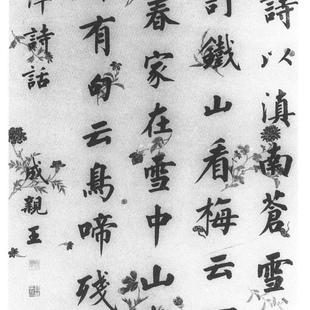 詩以滇南蒼雪
鐵山看梅云
春家在雪中山
有句云鳥啼殘
洋詩話
成親王